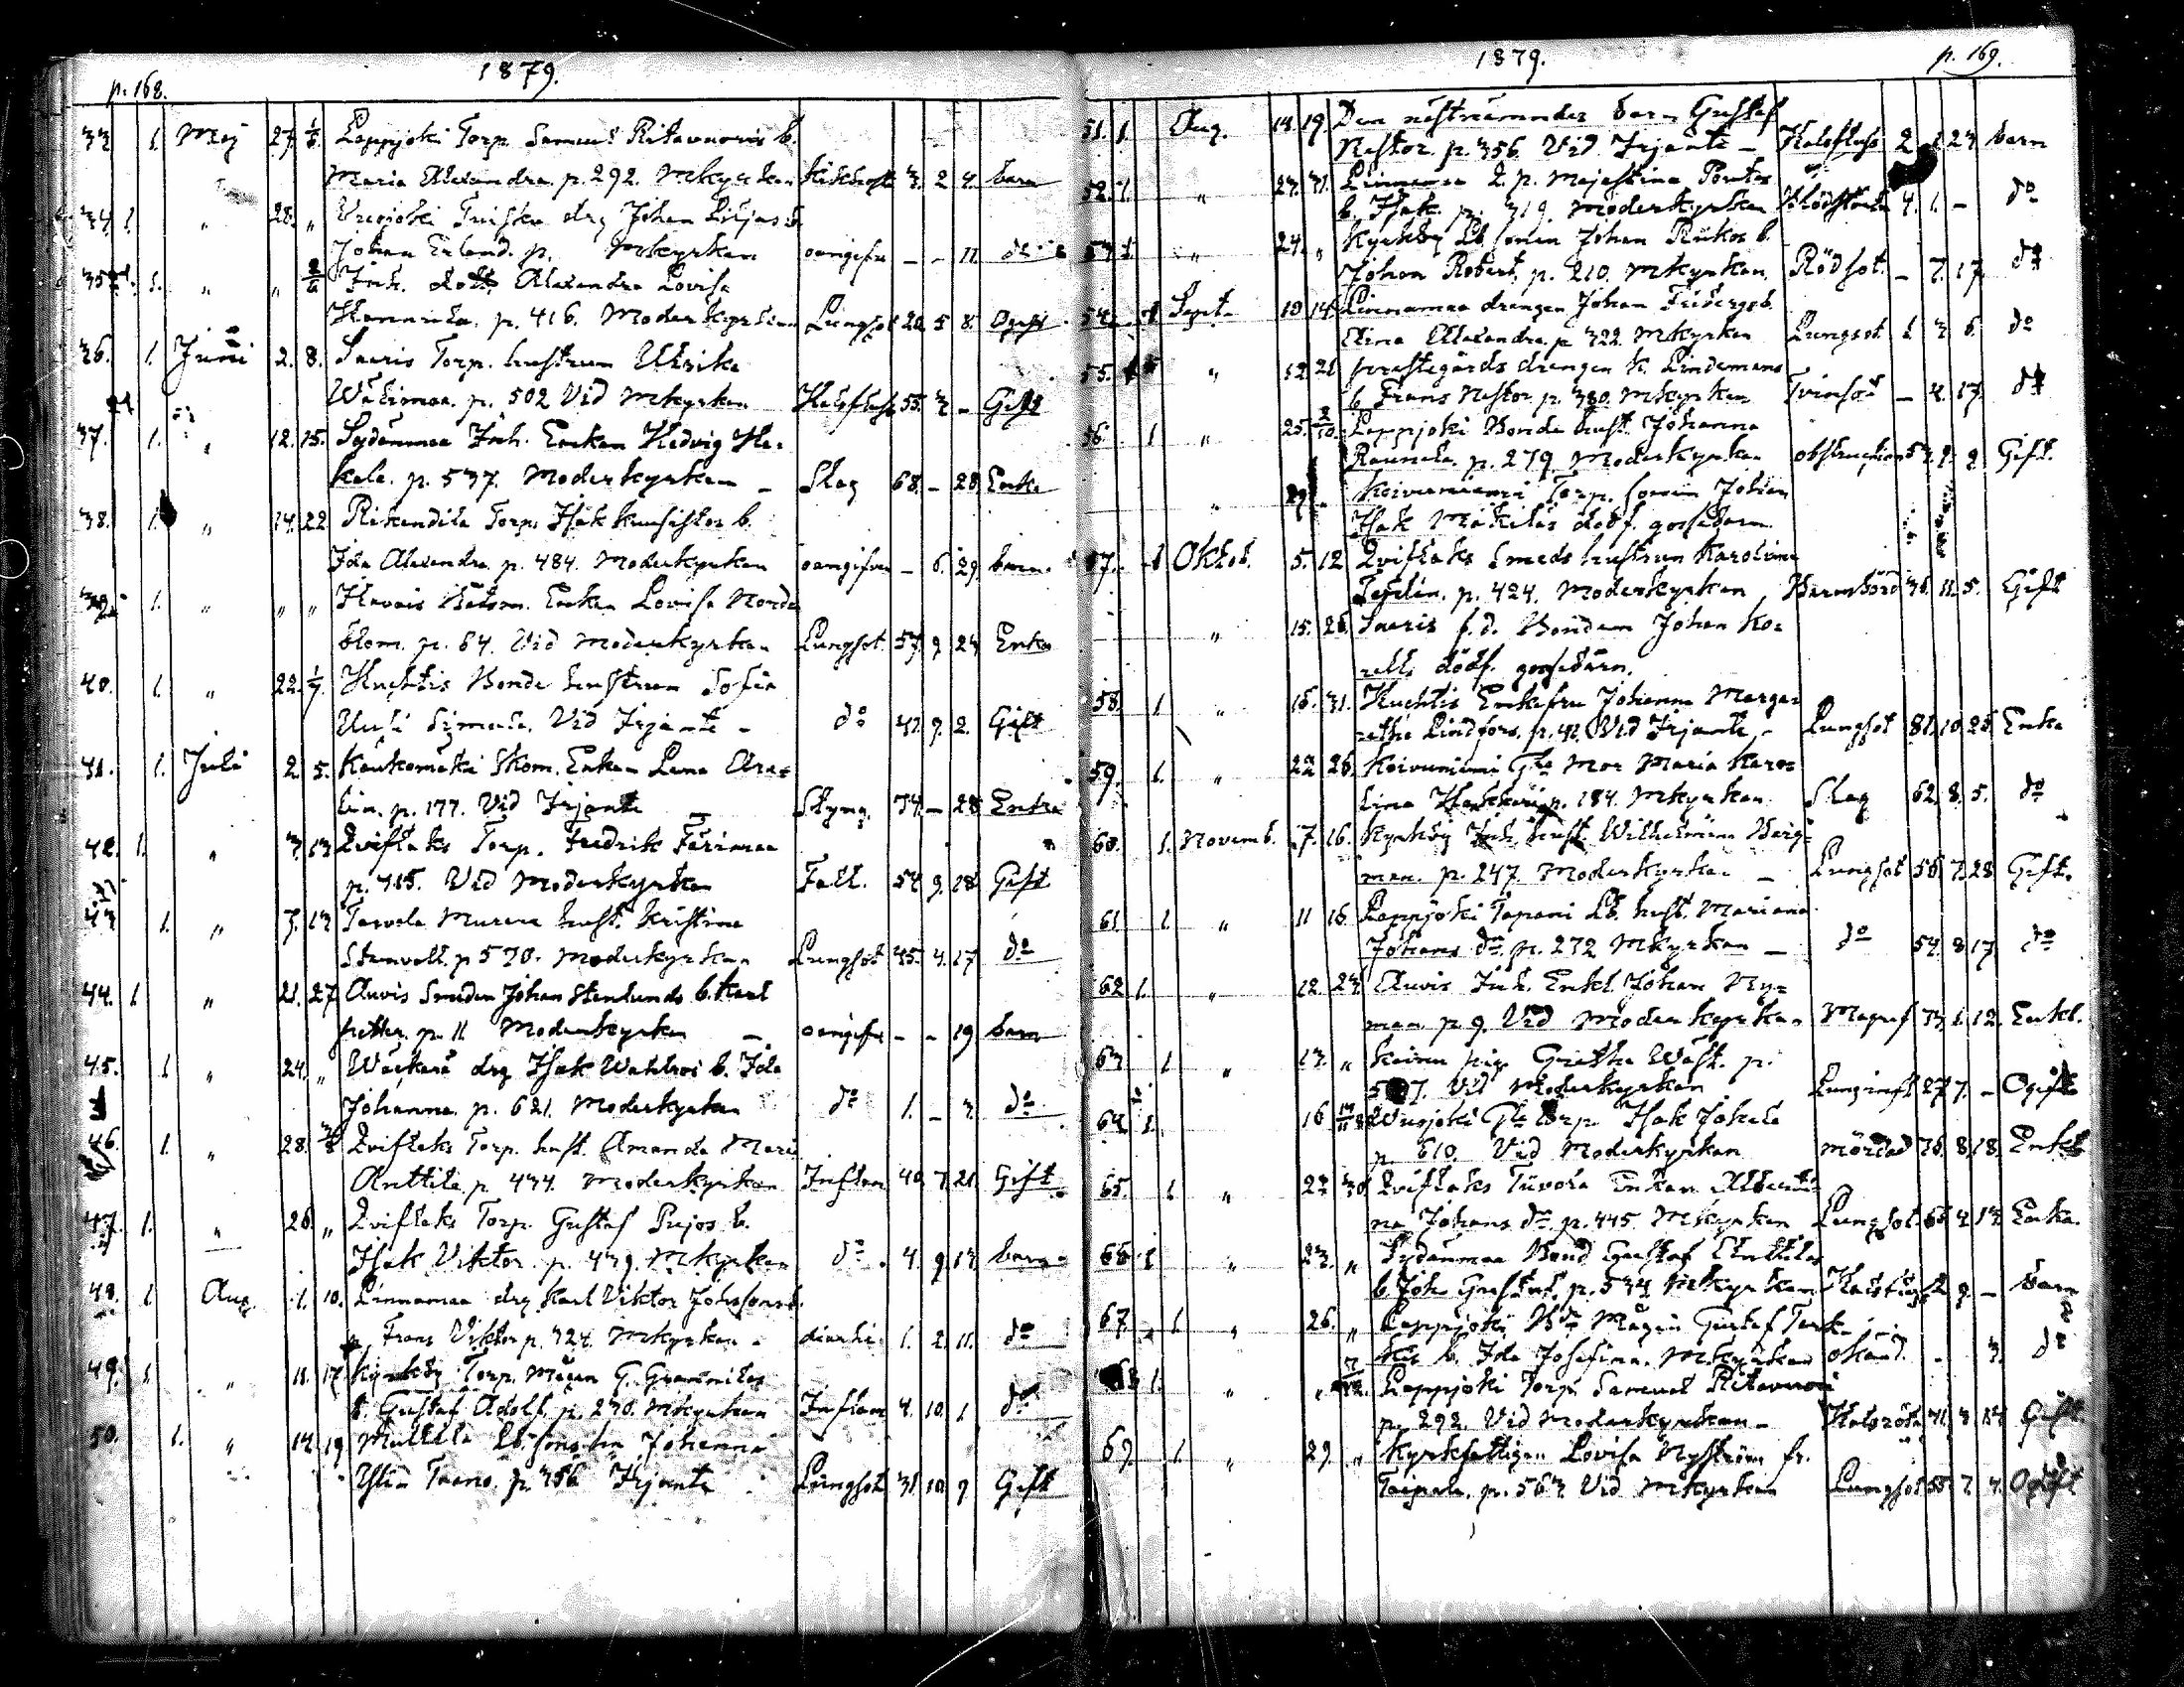 p. 168. 1879.
33 1. Maj 27. 1/6. Lappjoki Torp. Samuel Ritavuoris b.
Maria Alexandra. p. 292. Mkyrkan Kikhosta 3. 2. 4. barn
34. 1. " 28. " Vuojoki drg Johan Liljas b.
Johan Erland. p. Mkyrkan oangifven - - 11. do
35. 1. " " Inh. dott. Alexandra Lovisa
p. 416. Moderkyrkan Lungsot 20. 5 8. Ogift
36. 1. Juni 2. 8. Saeris Torp. hustrun Ulrika
Wälimaa. p. 502 Vid Mkyrkan Halsfluss 55. 3. - Gift
37. 1. " 12. 15. Sydänmaa Inh. Enkan Hedvig He-
kala. p. 537. Moderkyrkan - Slag 68. - 28 Enka
38. 1. " 14. 22 Rikandila Torp. Isak Kuusistos b.
Ida Alexandra. p. 484. Moderkyrkan oangifven - 6. 29. barn.
39. 1. " " " Båtsm. Enkan Lovisa Nord-
blom. p. 64. Vid Moderkyrkan Lungsot 57. 9 23 Enka
40. 1. " 22. 1/7. Huhtis Bonde hustrun Sofia
Uusi Simula. Vid Irjante - do 42. 9. 2. Gift
41. 1. Juli 2. 5. Kaukomäki Skom. Enkan Lena
lin. p. 177. Vid Irjante - 74. - 28 Enka
42. 1. " 3. 13 Lavila Torp. Fredrik
p. 415. Vid Moderkyrkan Fall. 54 9. 28 Gift
43 1. " 7. 13 Tarvola hust. Kristina
Stenvall. p. 570. Moderkyrkan Lungsot 45. 4. 17 do
44. 1. " 21. 27 Auvis Smeden Johan Stenlunds b. Karl
Petter. p. 11 Moderkyrkan - oangifven - - 19 barn
45. 1. " 24. " Wäckärä drg Isak Wahlroos b. Ida
Johanna. p. 621. Moderkyrkan do 1. - 3. do
46. 1. " 28. 3/8 Torp. hust. Amanda Maria
Anttila p. 434. Moderkyrkan Inflam 40. 7. 21. Gift
47. 1. " 26. " Torp. Gustaf Pujos b.
Isak Viktor. p. 439. Mkyrkan do. 4. 9. 13. barn
48. 1. Aug. 1. 10. Linnamaa drg Karl Viktor Johssons b.
Frans Viktor p. 324. Mkyrkan - diarhé. 1. 2. 11. do
49. 1. " 11. 17. Kyrkby Torp. Mågen G. Grannilas
b. Gustaf Adolf. p. 230. Mkyrkan Inflam 4. 10. 1. do
50. 1. " 14. 19. Mullila Lb. sonhu Johanna
Taano. p. 356 Irjante Lungsot 31. 10. 9. Gift
1879. p. 169.
51. 1. Aug. 14. 19. Den nästnämndes barn Gustaf
Nestor. p. 356. Vid Irjante - Halsfluss 2 1 23 barn
52. 1. " 23. 31. Linnamaa Majastina
b. Isak. p. 319. Moderkyrkan 4. 1. - do
53. 1. " 24. " Kyrkby Lb. sonen Johan Rükos b.
Johan Robert. p. 210. Mkyrkan. Rödsot. - 7. 17. do
54. 1 Sept. 10 14. Linnamaa drengen Johan Fribergs b.
Elina Alexandra. p 322. Mkyrkan Lungsot 1. 3. 6. do
55. " 12. 21 prestegårds drengen K. Lindemans
b. Frans Nestor. p. 380. Mkyrkan Tvinsot - 4. 17. do
56. 1 " 25. Lappjoki Bonde hust. Johanna
Raunela. p. 279. Moderkyrkan obstruction 53. 9. 9. Gift.
" 29. " Koivuniemi Torp. sonen Johan
Isak Mäkiläs dödf. gossebarn.
57. 1 Oktob. 5. 12 Smeds hustrun Karolina
Tefelin. p. 424. Moderkyrkan, Barnsbörd 36. 11. 5. Gift
" 15. 26. Saeris f.d. Bonden Johan Ko-
rells dödf. gossebarn.
58. 1. " 15. 31. Huhtis Enkefru Johanna Marga-
retha Lindfors. p. 42. Vid Irjante. - Lungsot 81. 10. 25 Enka
59. 1. " 22 26. Koivuniemi Mor Maria Karo-
lina p. 184. Mkyrkan. Slag 62. 8. 5. do
60. 1. Novemb. 7. 16. Kyrkby Inh. hust. Wilhelmina Berg-
man. p. 247. Moderkyrkan - Lungsot 56. 7. 28 Gift.
61 1. " 11 16. Lappjoki Tapani Lb. hust. Mariana
Johans dr. p. 272 Mkyrkan - do 54. 8 17 do
62 1. " 12. 23. Auvis Inh. Enkl. Johan Ny-
man. p. 9. Vid Moderkyrkan Magref 73. 1. 12. Enkl.
63 1 " 13. " pig. Gretha Wäst. p.
Vid Moderkyrkan 27 7. - Ogift
64 1. 16 Vuojoki Torp. Isak Jokela
p. 610. Vid Moderkyrkan mördad 76. 8. 18. Enkl
65. 1 " 22 30 Enkan Alberti-
na Johans dr. p. 445. Mkyrkan Lungsot. 66 2 13. Enka.
66 1 " 23. " Sydänmaa Bond Gustaf Anttilas
b. Joh. Gustaf. p. 534 Mkyrkan 2 9 - barn
67. 1. " 26. " Lappjoki Mågen Gustaf
b. Ida Josefina. Mkyrkan okänd. - 3. do
68 1. " " Lappjoki Torp. Samuel Ritavuori
p. 292. Vid Moderkyrkan - 71. 3 24 Gift
69. 1. " 29. " Kyrkfattigen Lovisa Nyström fr.
Taipale. p. 563 Vid Mkyrkan Lungsot 55. 7. 4. Ogift